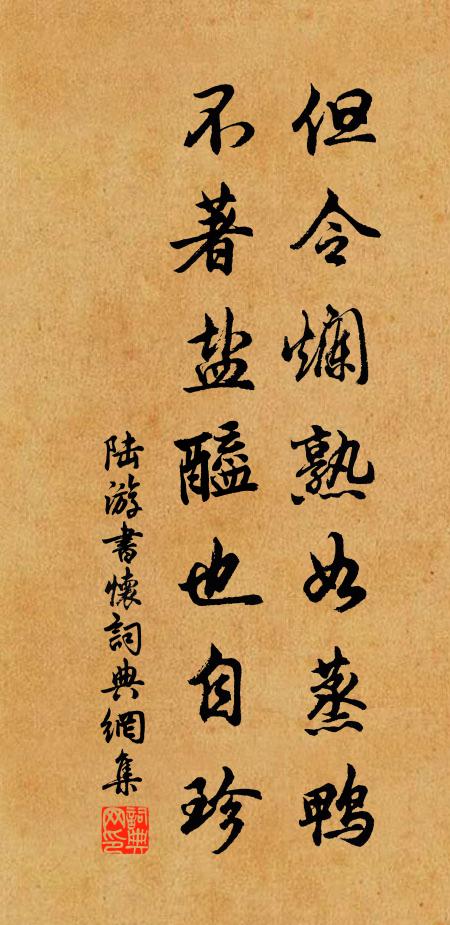 但令爛熟如蒸鴨
不著盐醯也自珍
陆游書懷詞典網集
詞典网印